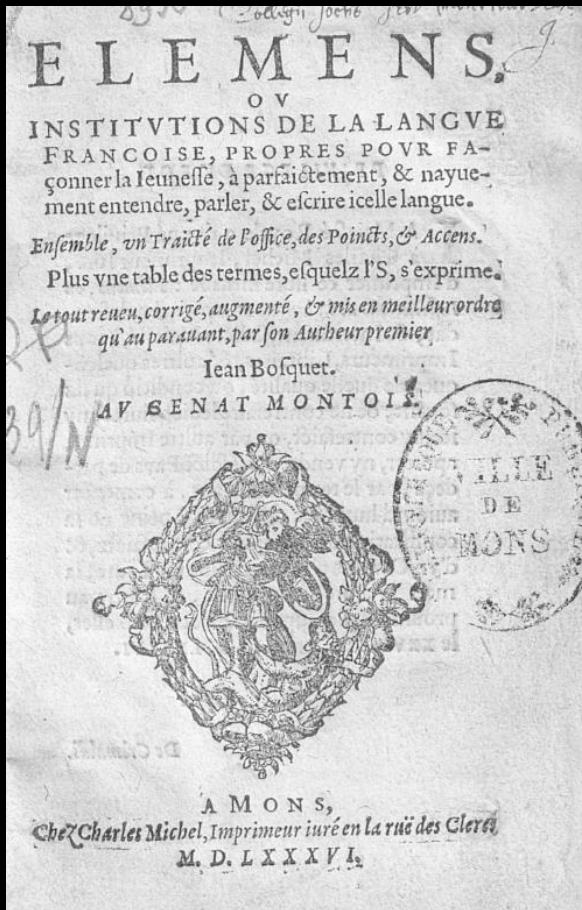 ELEMENS,
OV
INSTITVTIONS DE LA LANGVE
FRANCOISE, PROPRES POVR FA-
çonner la Ieuneſſe, à parfaictement, & nayue-
ment entendre, parler, & eſcrire icelle langue.
Enſemble, vn Traicté de l'office, des Poincts, & Accens.
Plus vne table des termes, eſquelz l'S, s'exprime.
Le tout reueu, corrigé, augmenté, & mis en meilleur ordre
qu'au parauant, par ſon Autheur premier
Iean Boſquet.
AV SENAT MONTOIS.
39/N
VILLE
DE
MONS
A MONS,
Chez Charles Michel, Imprimeur iuré en la ruë des Clercs
M. D. LXXXVI.